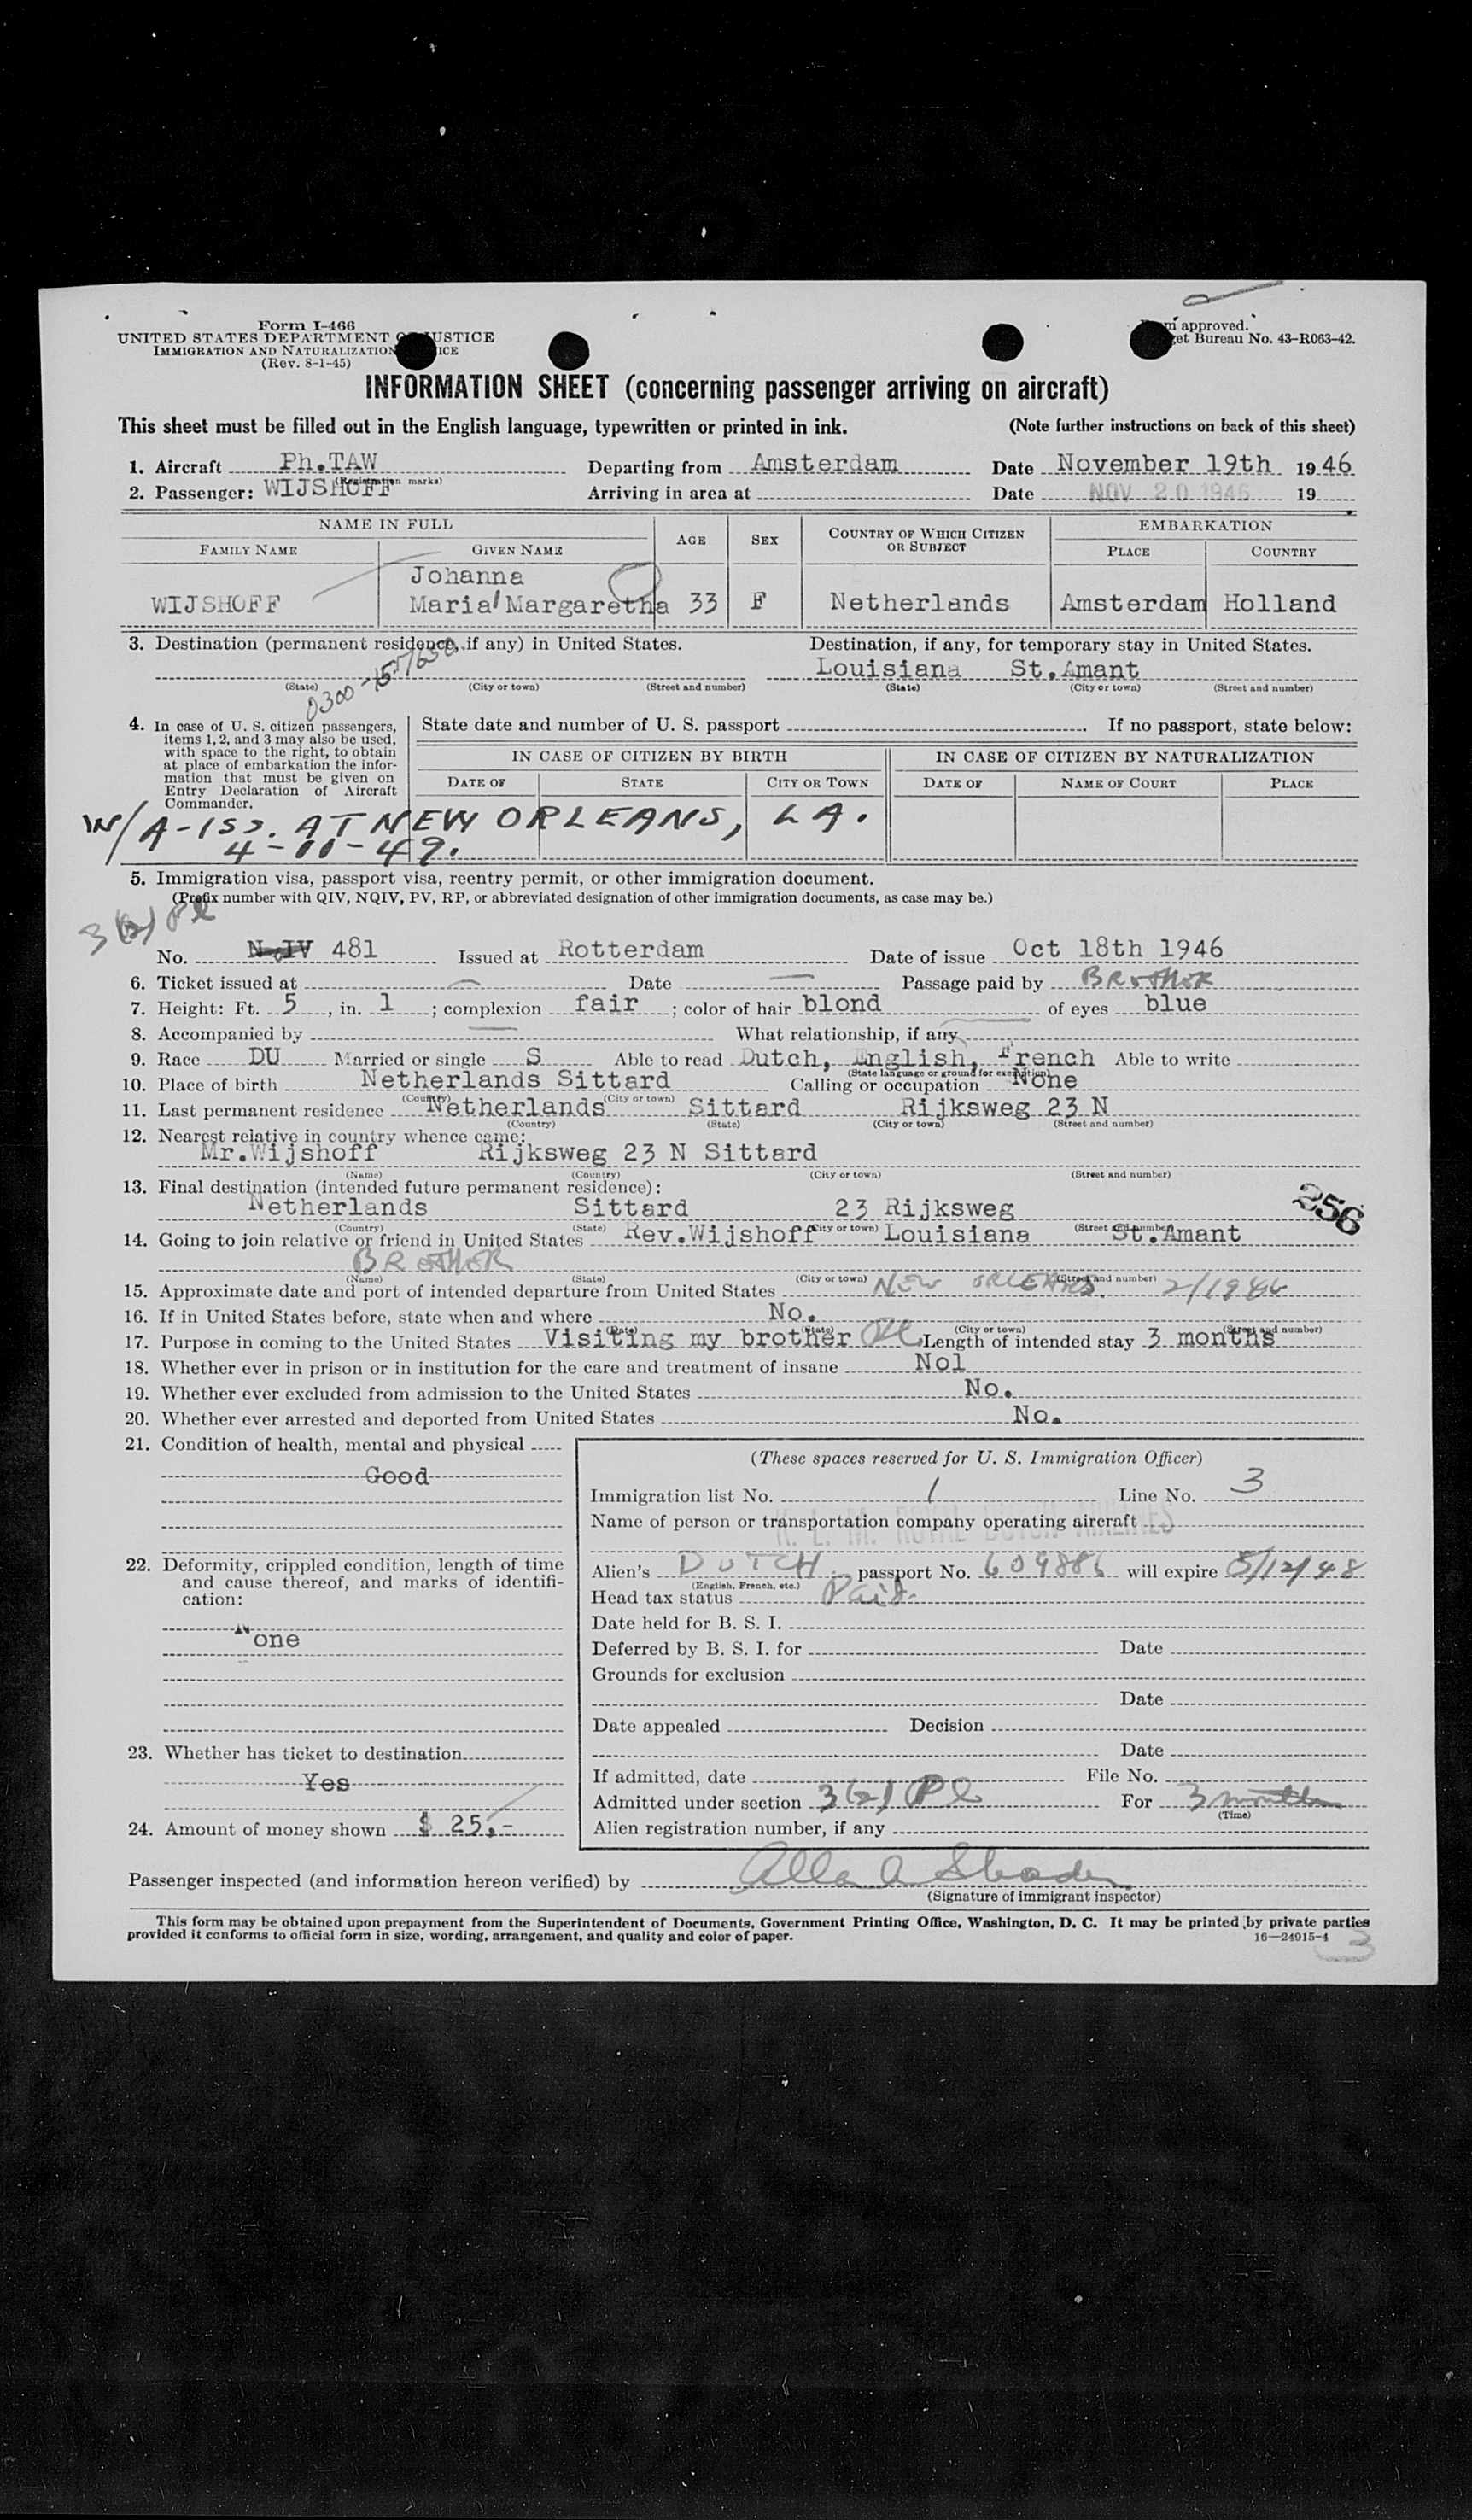 Form I-466
UNITED STATES DEPARTMENT OF JUSTICE
IMMIGRATION AND NATURALIZATION
(Rev. 8-1-45)
approved.
Bureau No. 43-R063-42.
INFORMATION SHEET (concerning passenger arriving on aircraft)
This sheet must be filled out in the English language, typewritten or printed in ink. (Note further instructions on back of this sheet)
1. Aircraft Ph.TAW Departing from Amsterdam Date November 19th 1946
(Registration marks)
2. Passenger: WIJSHOFF Arriving in area at Date NOV 20 1946 19
NAME IN FULL AGE SEX COUNTRY OF WHICH CITIZEN OR SUBJECT EMBARKATION
FAMILY NAME GIVEN NAME PLACE COUNTRY
Johanna
WIJSHOFF Maria Margaretha 33 F Netherlands Amsterdam Holland
3. Destination (permanent residence, if any) in United States. Destination, if any, for temporary stay in United States.
Louisiana St.Amant
(State) (City or town) (Street and number) (State) (City or town) (Street and number)
0300
4. In case of U. S. citizen passengers, items 1, 2, and 3 may also be used, with space to the right, to obtain at place of embarkation the information that must be given on Entry Declaration of Aircraft Commander.
State date and number of U. S. passport . If no passport, state below:
IN CASE OF CITIZEN BY BIRTH IN CASE OF CITIZEN BY NATURALIZATION
DATE OF STATE CITY OR TOWN DATE OF NAME OF COURT PLACE
W/A-ISS. AT NEW ORLEANS, LA.
4-11-49.
5. Immigration visa, passport visa, reentry permit, or other immigration document.
(Prefix number with QIV, NQIV, PV, RP, or abbreviated designation of other immigration documents, as case may be.)
3(2) Pl
No. 481 Issued at Rotterdam Date of issue Oct 18th 1946
6. Ticket issued at — Date — Passage paid by BROTHER
7. Height: Ft. 5, in. 1; complexion fair; color of hair blond of eyes blue
8. Accompanied by — What relationship, if any
9. Race DU Married or single S Able to read Dutch, English, French Able to write
(State language or ground for exemption)
10. Place of birth Netherlands Sittard Calling or occupation None
(Country) (City or town)
11. Last permanent residence Netherlands Sittard Rijksweg 23 N
(Country) (State) (City or town) (Street and number)
12. Nearest relative in country whence came:
Mr.Wijshoff Rijksweg 23 N Sittard
(Name) (Country) (City or town) (Street and number)
13. Final destination (intended future permanent residence):
Netherlands Sittard 23 Rijksweg
256
(Country) (State) (City or town) (Street and number)
14. Going to join relative or friend in United States Rev.Wijshoff Louisiana St.Amant
BROTHER
(Name) (State) (City or town) (Street and number)
15. Approximate date and port of intended departure from United States NEW ORLEANS.
16. If in United States before, state when and where No.
(Date) (State) (City or town) (Street and number)
17. Purpose in coming to the United States Visiting my brother Pl Length of intended stay 3 months
18. Whether ever in prison or in institution for the care and treatment of insane Nol
19. Whether ever excluded from admission to the United States No.
20. Whether ever arrested and deported from United States No.
21. Condition of health, mental and physical
Good
22. Deformity, crippled condition, length of time and cause thereof, and marks of identification:
None
23. Whether has ticket to destination
Yes
24. Amount of money shown $ 25,-
(These spaces reserved for U. S. Immigration Officer)
Immigration list No. 1 Line No. 3
Name of person or transportation company operating aircraft
K. L. M. ROYAL DUTCH AIRLINES
Alien's DUTCH passport No. 609886 will expire 5/12/48
(English, French, etc.)
Head tax status Paid.
Date held for B. S. I.
Deferred by B. S. I. for Date
Grounds for exclusion
Date
Date appealed Decision
Date
If admitted, date File No.
Admitted under section 3(2) Pl For 3 months
(Time)
Alien registration number, if any
Passenger inspected (and information hereon verified) by
(Signature of immigrant inspector)
This form may be obtained upon prepayment from the Superintendent of Documents, Government Printing Office, Washington, D. C. It may be printed by private parties
provided it conforms to official form in size, wording, arrangement, and quality and color of paper. 16—24915-4
3